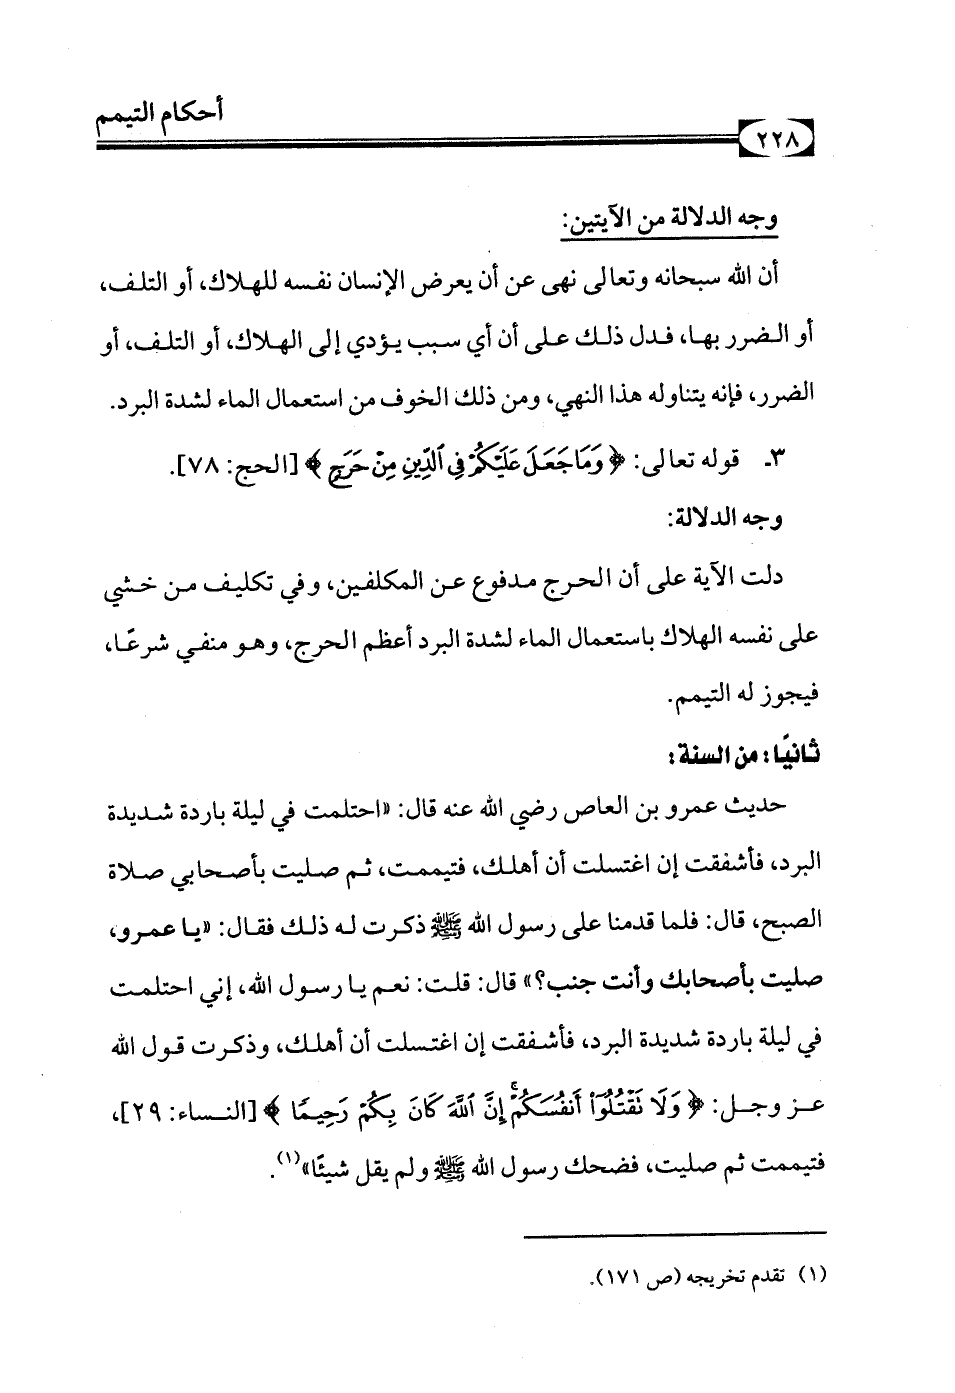 أحكام التيمم
٢٢٨
وجه الدلالة من الآيتين:
أن الله سبحانه وتعالى نهى عن أن يعرض الإنسان نفسه للهلاك، أو التلف،
أو الضرر بها، فدل ذلك على أن أي سبب يؤدي إلى الهلاك، أو التلف، أو
الضرر، فإنه يتناوله هذا النهي، ومن ذلك الخوف من استعمال الماء لشدة البرد.
٣ـ قوله تعالى: ﴿وَمَا جَعَلَ عَلَيْكُمْ فِي ٱلدِّينِ مِنْ حَرَجٍ﴾ [الحج: ٧٨].
وجه الدلالة:
دلت الآية على أن الحرج مدفوع عن المكلفين، وفي تكليف من خشي
على نفسه الهلاك باستعمال الماء لشدة البرد أعظم الحرج، وهو منفي شرعًا،
فيجوز له التيمم.
ثانيًا: من السنة:
حديث عمرو بن العاص رضي الله عنه قال: «احتلمت في ليلة باردة شديدة
البرد، فأشفقت إن اغتسلت أن أهلك، فتيممت، ثم صليت بأصحابي صلاة
الصبح، قال: فلما قدمنا على رسول الله ﷺ ذكرت له ذلك فقال: «يا عمرو،
صليت بأصحابك وأنت جنب؟» قال: قلت: نعم يا رسول الله، إني احتلمت
في ليلة باردة شديدة البرد، فأشفقت إن اغتسلت أن أهلك، وذكرت قول الله
عز وجل: ﴿وَلَا تَقْتُلُوٓا۟ أَنفُسَكُمْ ۚ إِنَّ ٱللَّهَ كَانَ بِكُمْ رَحِيمًا﴾ [النساء: ٢٩]،
فتيممت ثم صليت، فضحك رسول الله ﷺ ولم يقل شيئًا»(١).
(١) تقدم تخريجه (ص ١٧١).